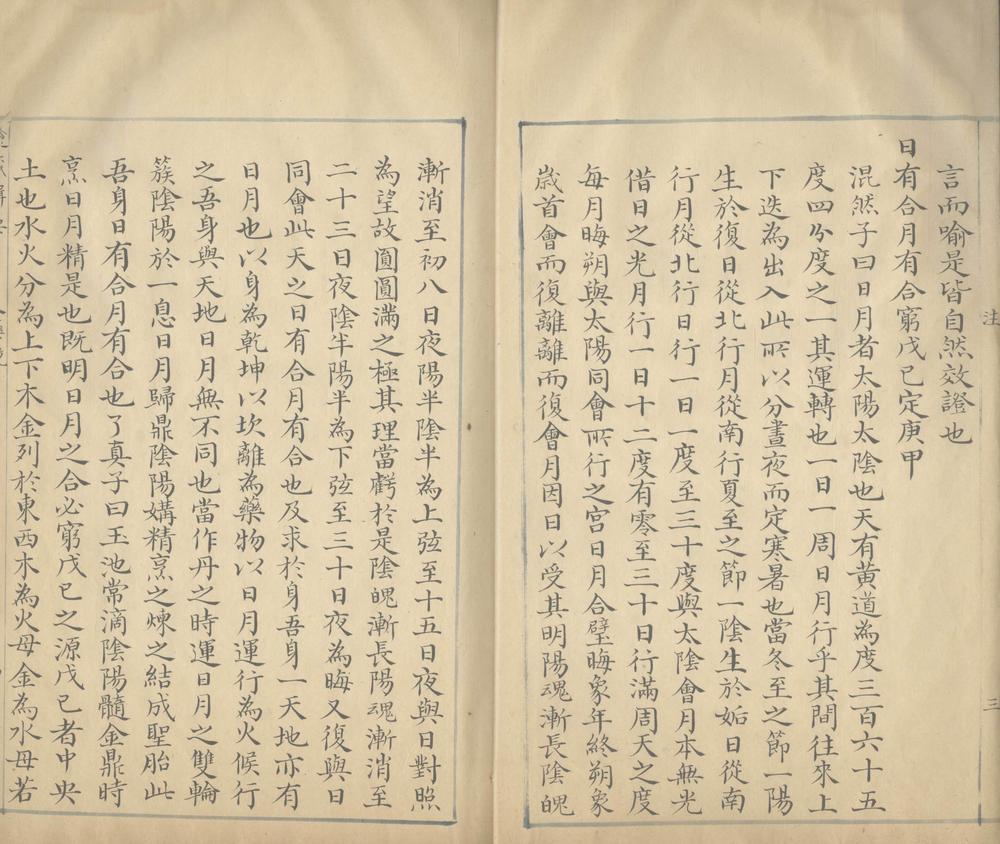 言而喻是皆自然效證也
日有合月有合窮戊己定庚甲
混然子曰日月者太陽太陰也天有黃道為度三百六十五
度四分度之一其運轉也一日一周日月行乎其間往來上
下迭為出入此所以分晝夜而定寒暑也當冬至之節一陽
生於復日從北行月從南行夏至之節一陰生於姤日從南
行月從北行日行一日一度至三十度與太陰會月本無光
借日之光月行一日十二度有零至三十日行滿周天之度
每月晦朔與太陽同會所行之宮日月合璧晦象年終朔象
歲首會而復離離而復會月因日以受其明陽魂漸長陰魄
漸消至初八日夜陽半陰半為上弦至十五日夜與日對照
為望故圓圓滿之極其理當虧於是陰魄漸長陽魂漸消至
二十三日夜陰半陽半為下弦至三十日夜為晦又復與日
同會此天之日有合月有合也及求於身吾身一天地亦有
日月也以身為乾坤以坎離為藥物以日月運行為火候行
之吾身與天地日月無不同也當作丹之時運日月之雙輪
簇陰陽於一息日月歸鼎陰陽媾精烹之煉之結成聖胎此
吾身日有合月有合也了真子曰玉池常滴陰陽髓金鼎時
烹日月精是也既明日月之合必窮戊己之源戊己者中央
土也水火分為上下木金列於東西木為火母金為水母若
注
三